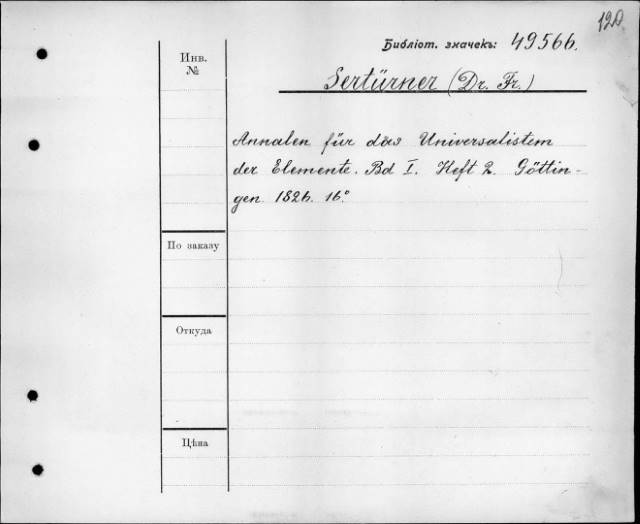 120
Библіот. значекъ: 49566.
Инв.
№
Sertürner (Dr. Fr.)
Annalen für das Universalistem
der Elemente. Bd I. Heft 2. Göttin-
gen 1826. 16°
По заказу
Откуда
Цѣна